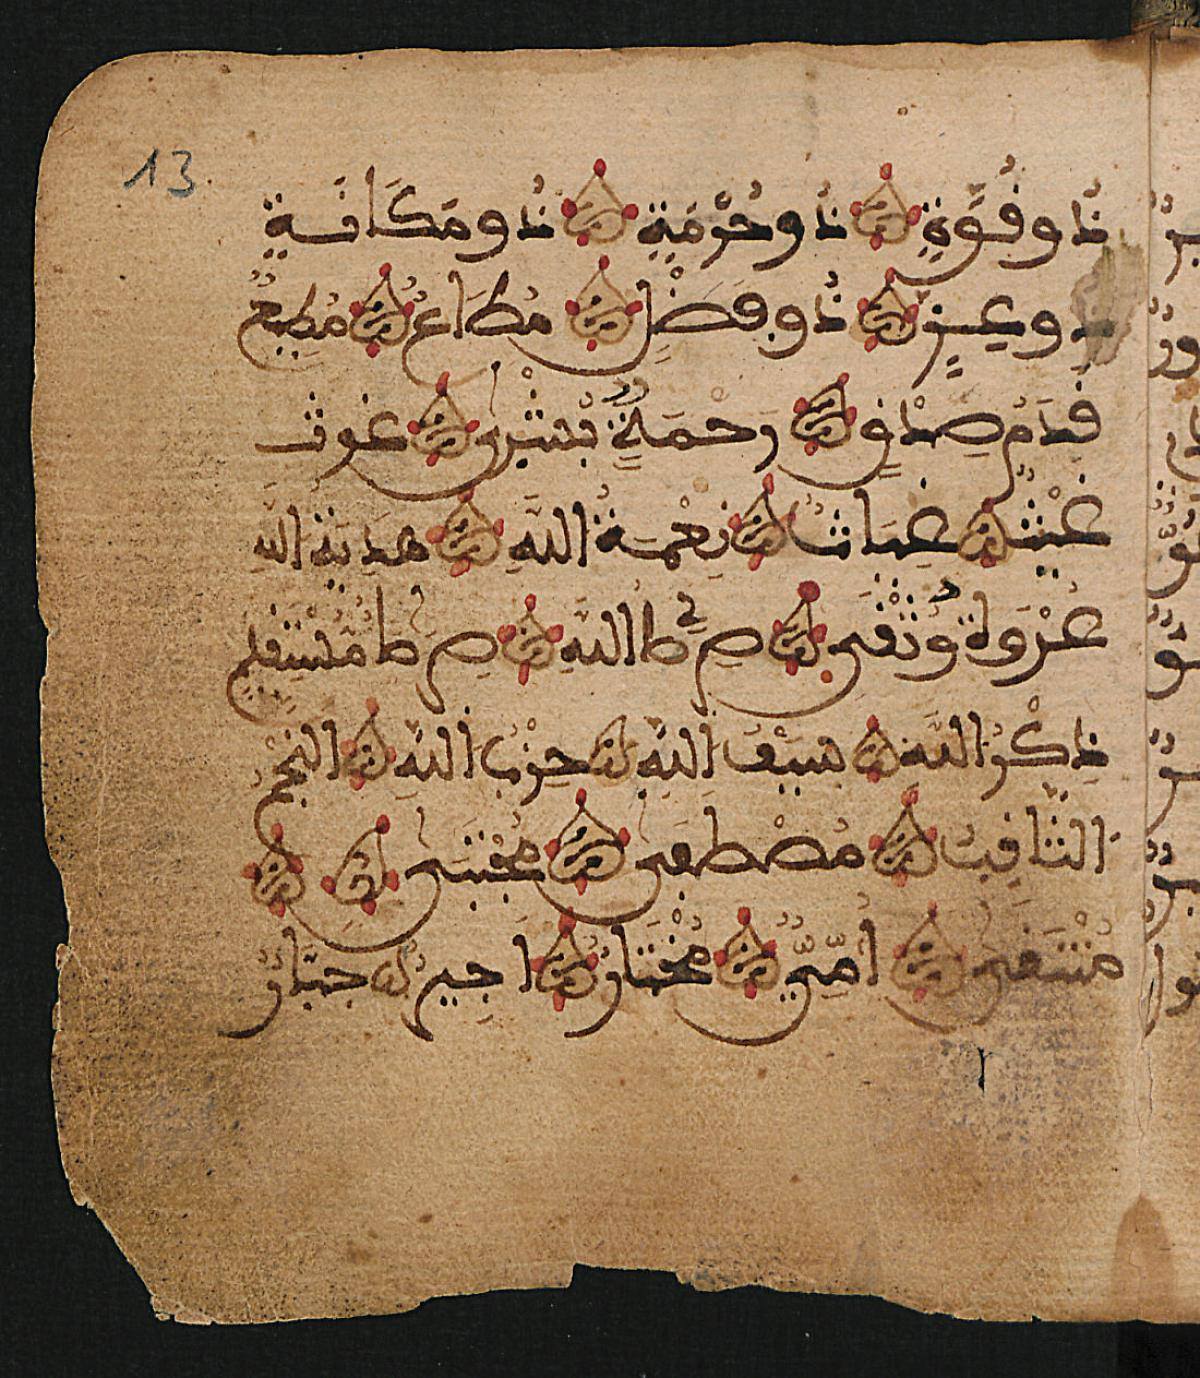 13
ذُو قُوَّةٍ ذُو حُرْمَةٍ ذُو مَكَانَةٍ
ذو عِزٍّ ذُو فَضْلٍ مُطَاعٌ مُطِيعٌ
قَدَمُ صِدْقٍ رَحْمَةٌ بُشْرى غَوْثٌ
غَيْثٌ غِيَاثٌ نِعْمَةُ اللَّهِ هَدِيَّةُ اللَّهِ
عُرْوَةٌ وُثْقَى صِرَاطُ اللَّهِ صِرَاطٌ مُسْتَقِيمٌ
ذِكْرُ اللَّهِ سَيْفُ اللَّهِ حِزْبُ اللَّهِ النَّجْمُ
الثَّاقِبُ مُصْطَفَى مُجْتَبَى
مُنْتَقَى اُمِّيٌّ مُخْتَارٌ اجِيرٌ جَبَّارٌ